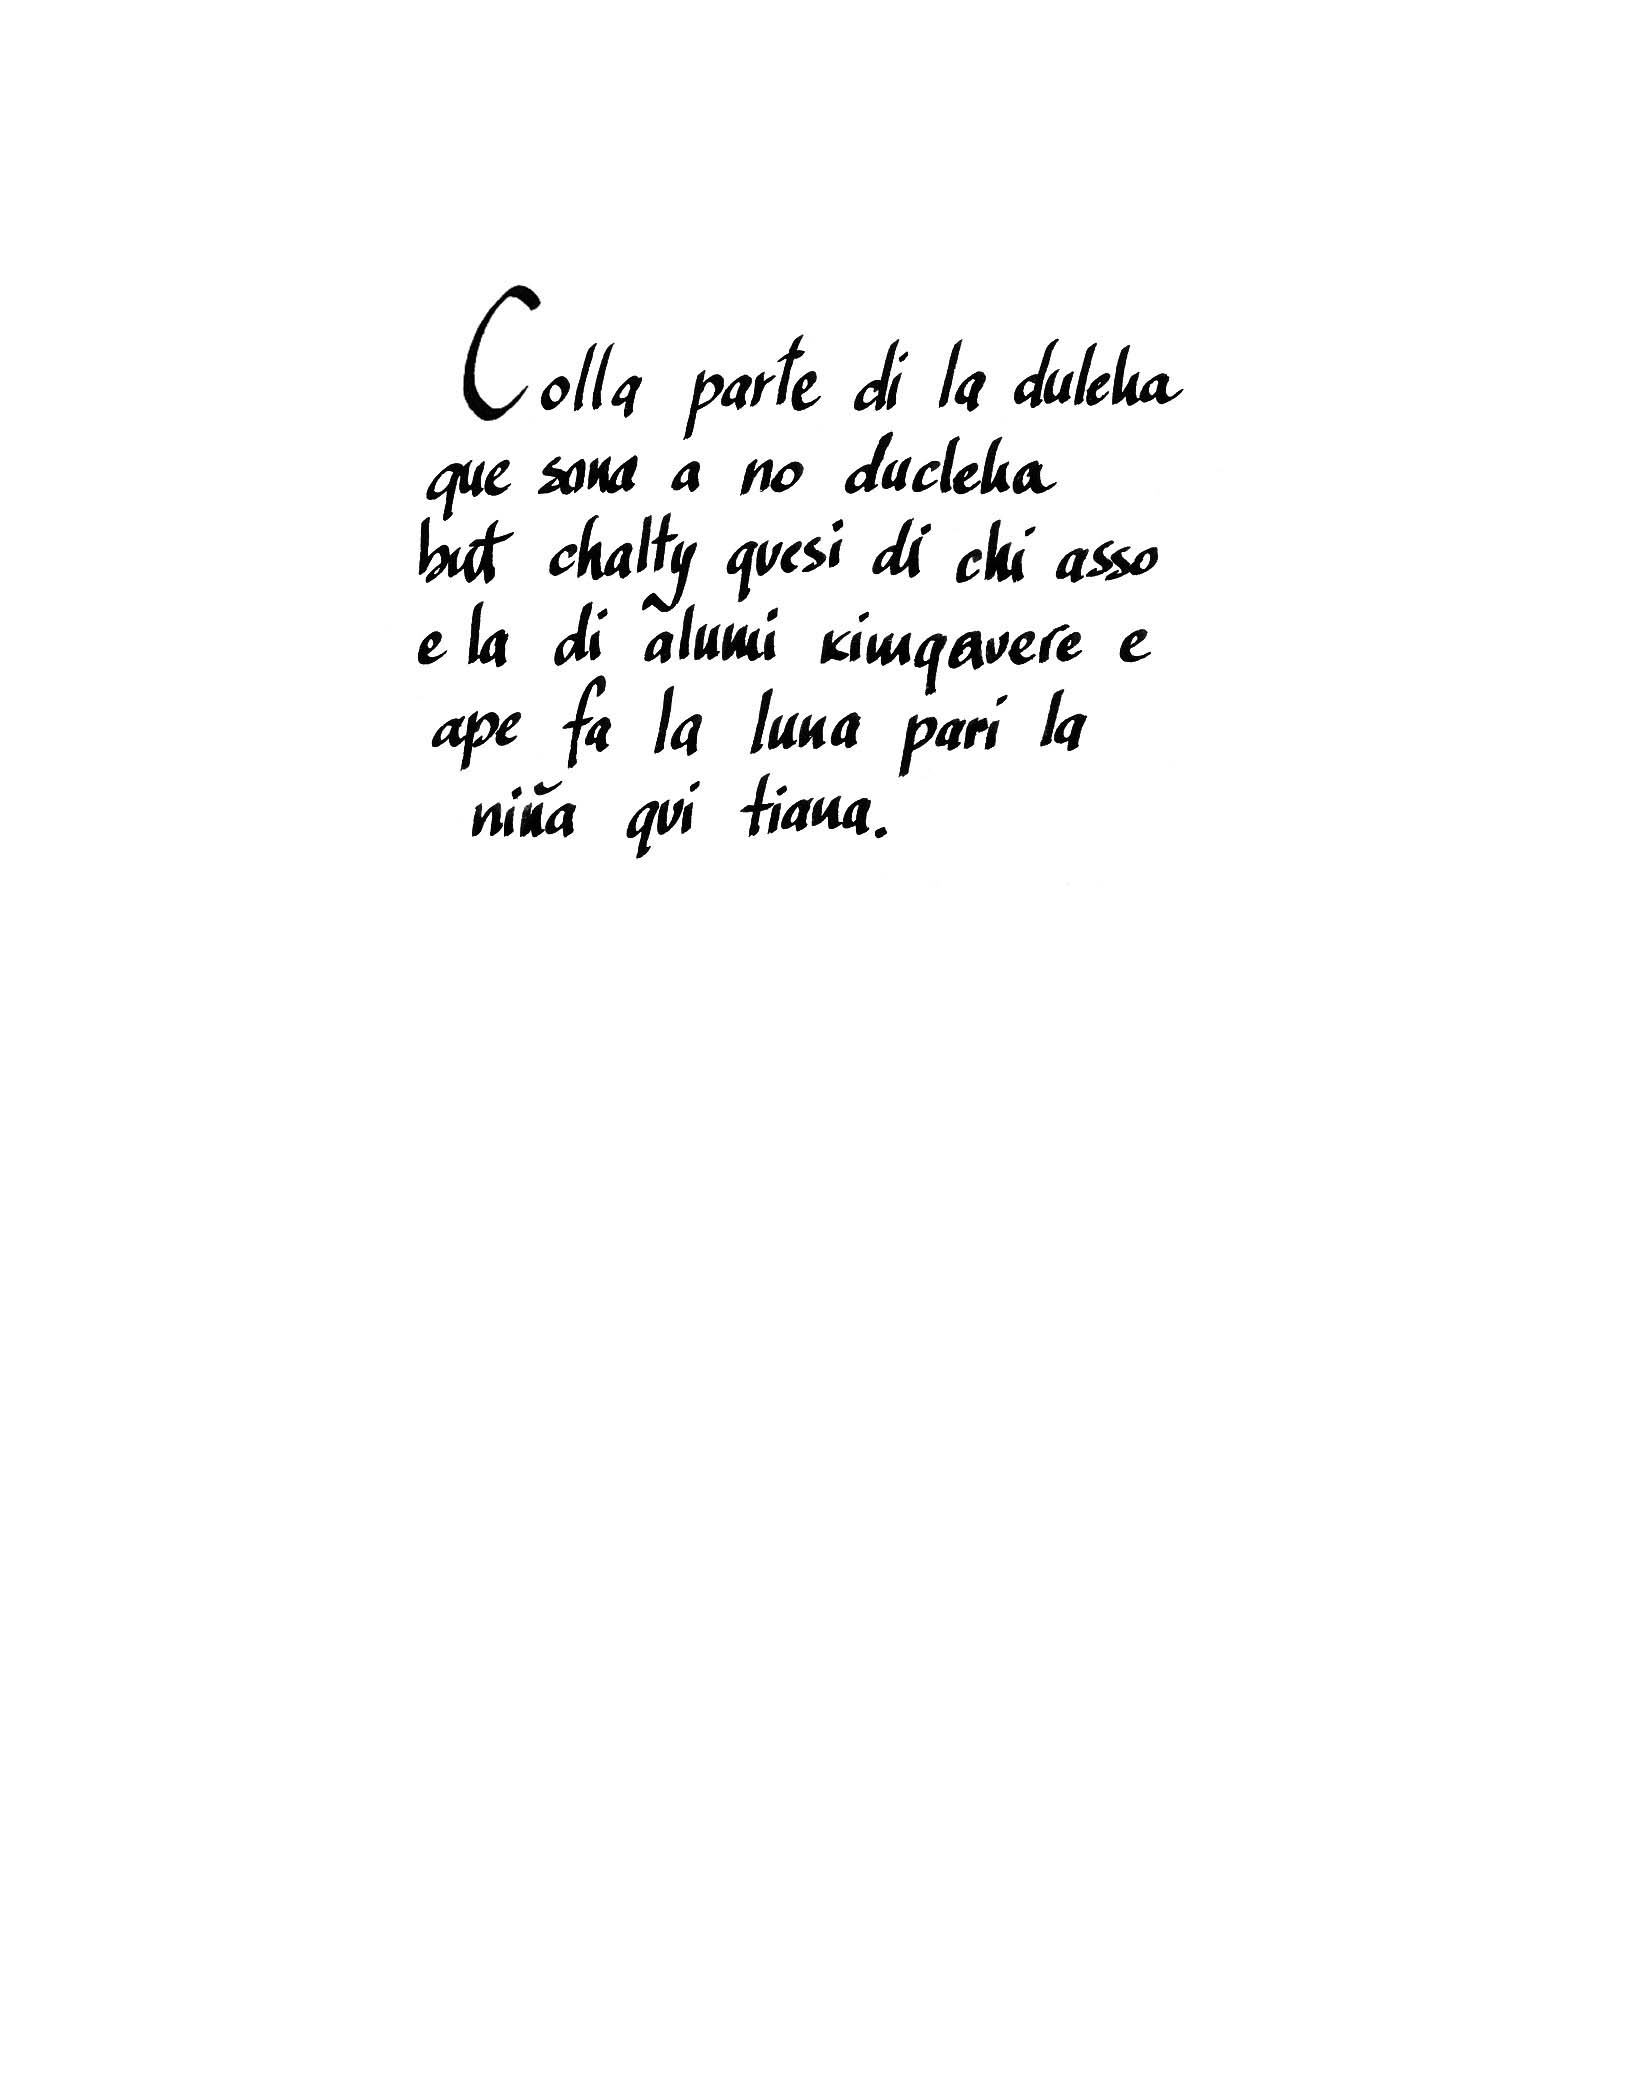 Colla parte di la duleha
que sona a no ducleha
but chalty quesi di chi asso
e la di ãlumi kimqavere e
ape fa la luna pari la
niña qui tiana.